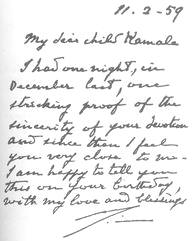 11.2-59
My dear child Kamala
I had one night, in
December last, one
striking proof of the
sincerity of your devotion
and since then I feel
you very close to me.
I am happy to tell you
this on your birthday,
with my love and blessings